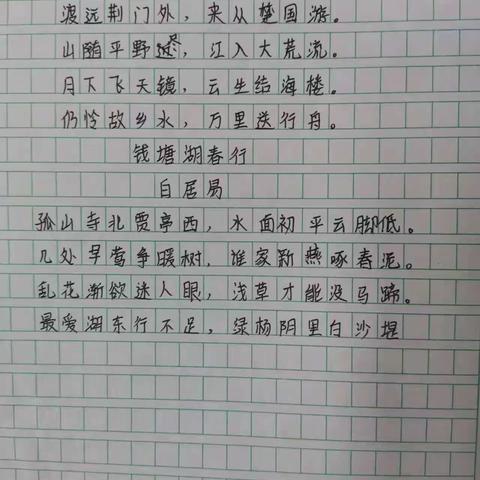 渡远荆门外，来从楚国游。
山随平野尽，江入大荒流。
月下飞天镜，云生结海楼。
仍怜故乡水，万里送行舟。
钱塘湖春行
白居易
孤山寺北贾亭西，水面初平云脚低。
几处早莺争暖树，谁家新燕啄春泥。
乱花渐欲迷人眼，浅草才能没马蹄。
最爱湖东行不足，绿杨阴里白沙堤